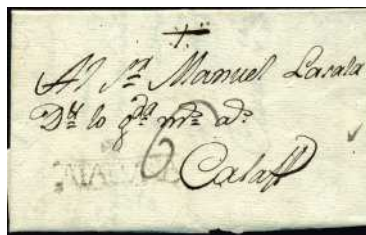 Al Sr Manuel Lasala
Ds lo gde ms as
6
Calaff